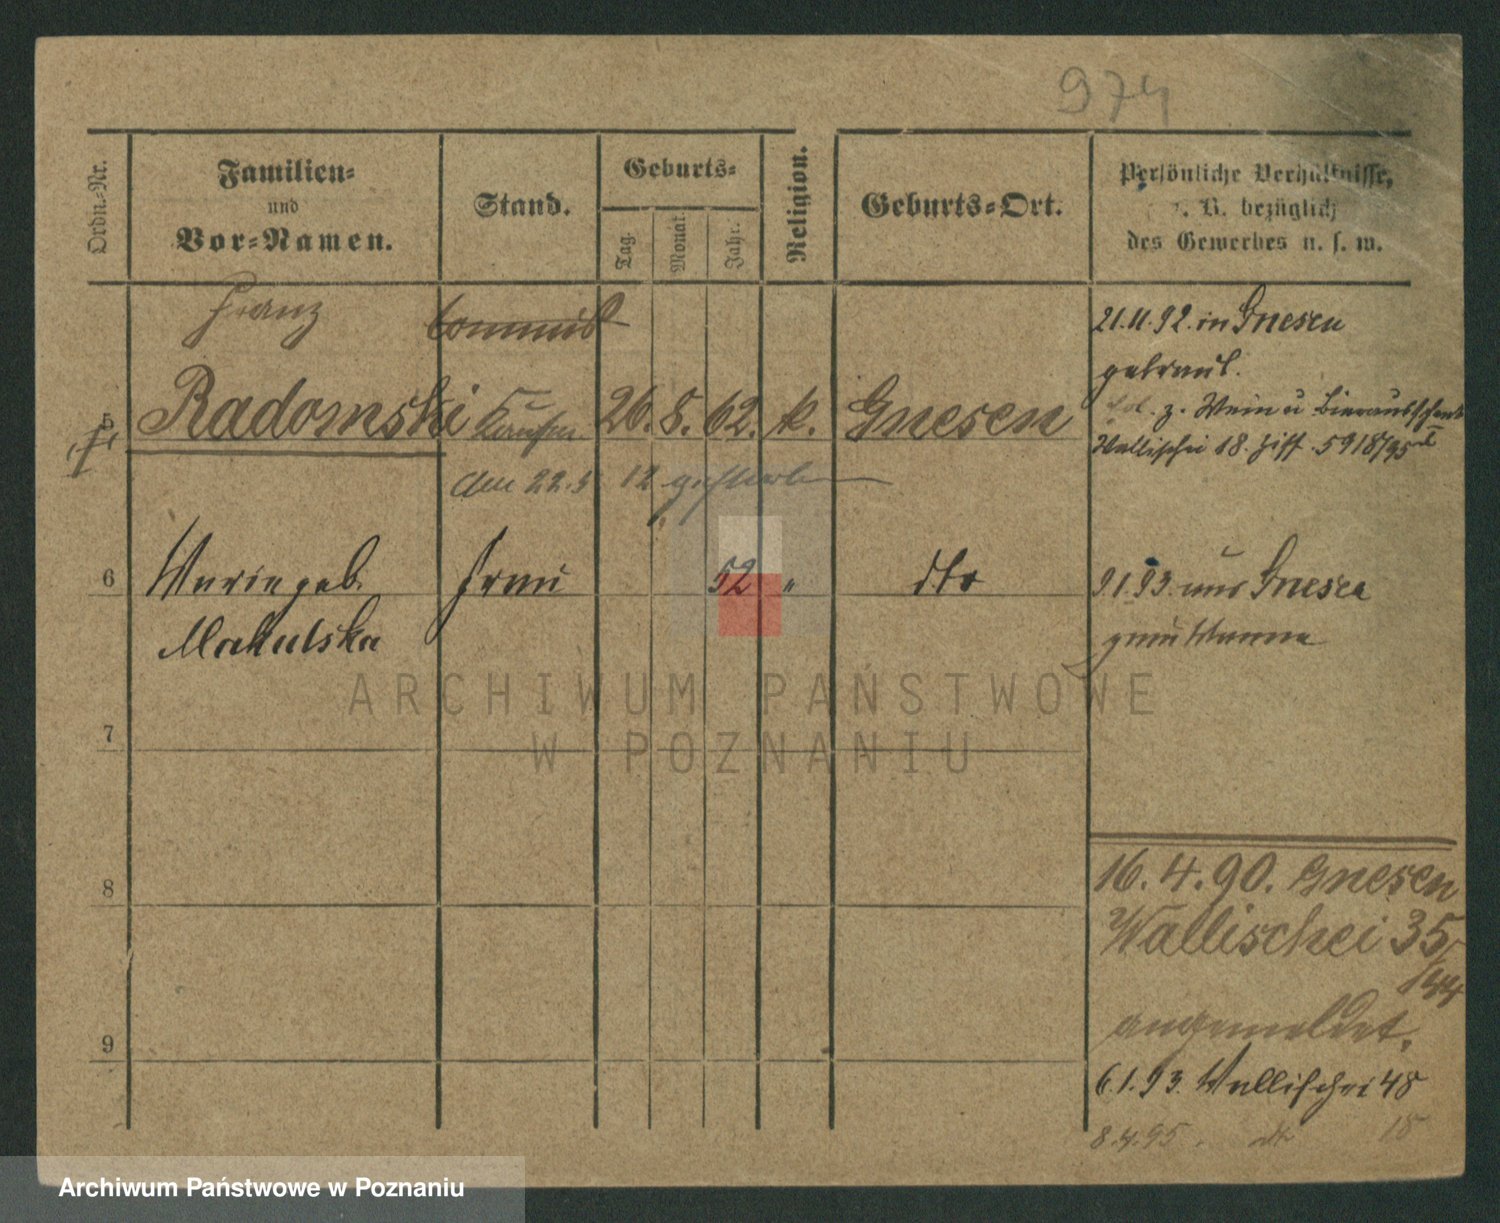 974
Ordn.-Nr.
Familien-
und
Vor-Namen.
Stand.
Geburts-
Tag.
Monat.
Jahr.
Religion.
Geburts-Ort.
Persönliche Verhältnisse,
z. B. bezüglich
des Gewerbes u. s. w.
Franz
Commis
21.11.92. in Gnesen
getraut.
5 Radomski Kaufm. 26. 8. 62. k. Gnesen
z. Wein u Bierausschank
Wallischei 18. Ziff. 5918/95
den 22.5 12 gestorben
6 Maria geb. Frau 52 " dto
Makulska
9.1.93. aus Gnesen
7
8
9
16.4.90. Gnesen
Wallischei 35
angemeldet.
6.1.93. Wallischei 48
8.4.95. dto 18
ARCHIWUM PAŃSTWOWE
W POZNANIU
Archiwum Państwowe w Poznaniu